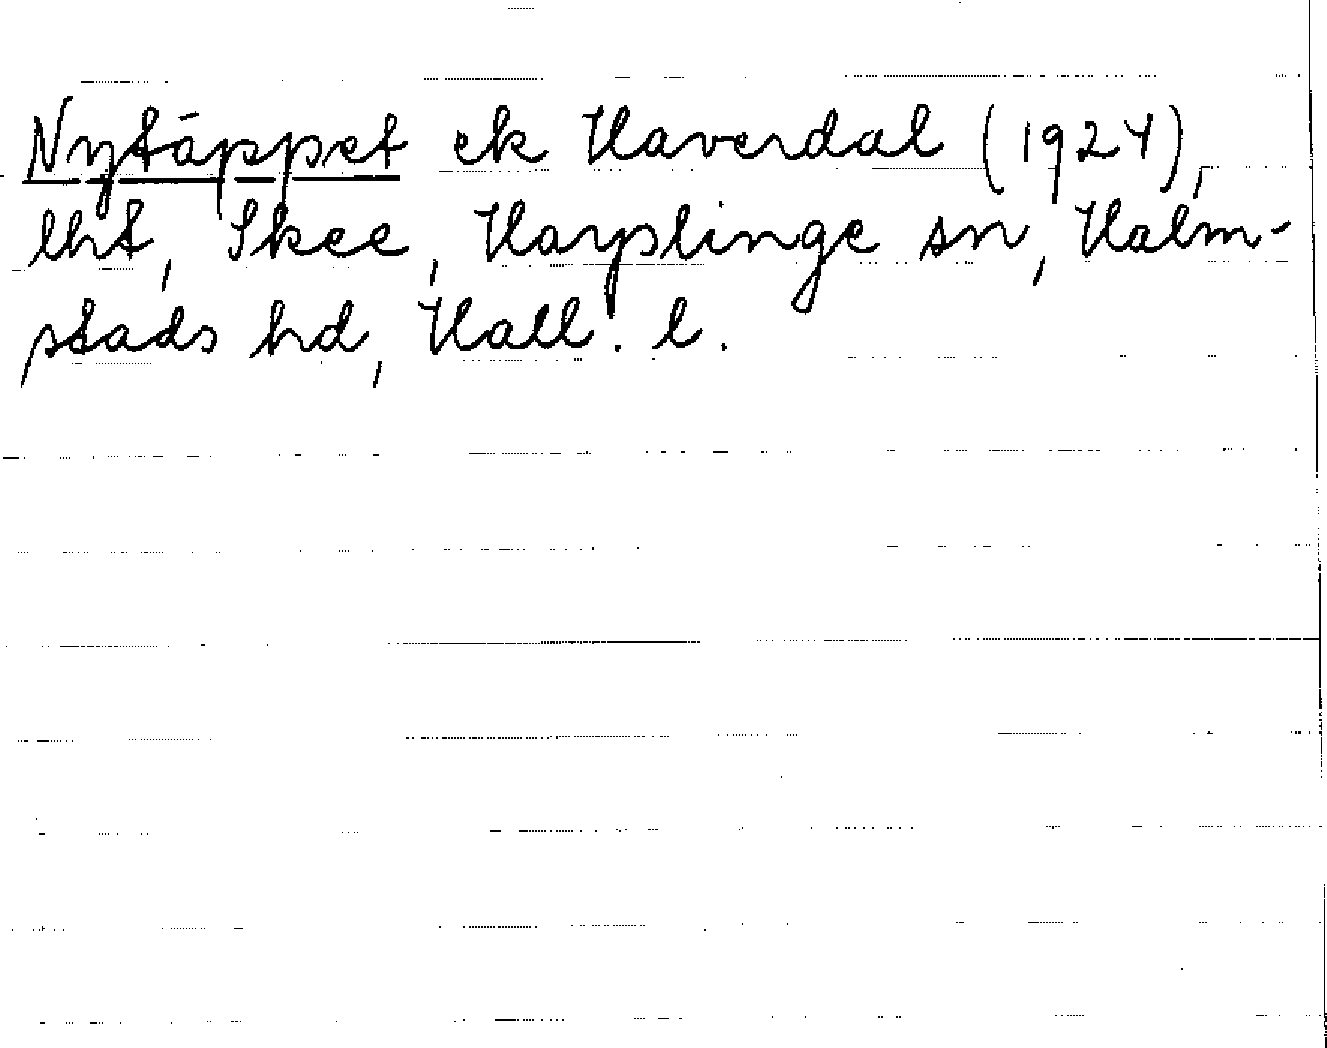 Nytäppet ek Haverdal (1924),
lht, Skee, Harplinge sn, Halm-
stads hd, Hall. l.